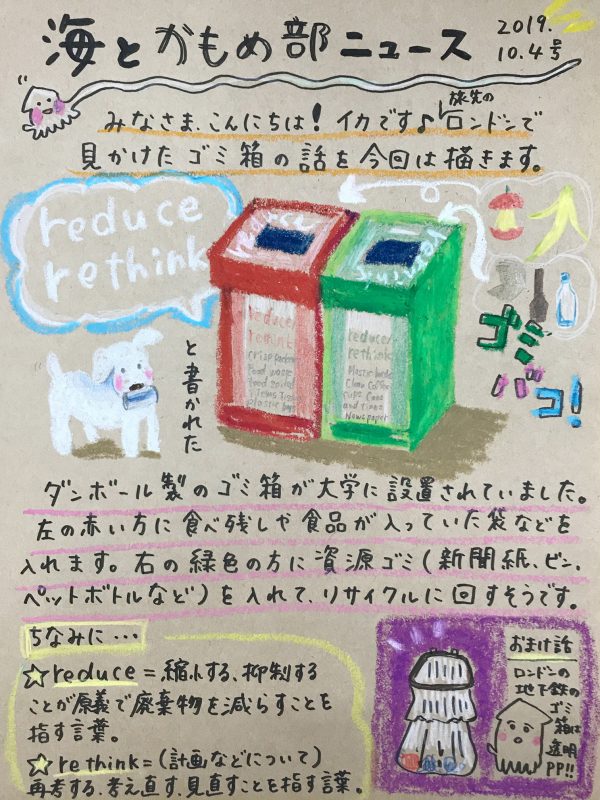 海とかもめ部ニュース
2019.
10.4号
みなさま、こんにちは！イカです♪旅先のロンドンで
見かけたゴミ箱の話を今回は描きます。
reduce
rethink
と書かれた
ゴミ
バコ！
reduce
rethink
Food waste
reduce
rethink
Plastic bottles
Clean Coffee
cups Cans
and tins
Newspaper
ダンボール製のゴミ箱が大学に設置されていました。
左の赤い方に食べ残しや食品が入っていた袋などを
入れます。右の緑色の方に資源ゴミ（新聞紙、ビン、
ペットボトルなど）を入れて、リサイクルに回すそうです。
ちなみに…
☆reduce＝縮小する、抑制する
ことが原義で廃棄物を減らすことを
指す言葉。
☆rethink＝（計画などについて）
再考する、考え直す、見直すことを指す言葉。
おまけ話
ロンドンの
地下鉄の
ゴミ
箱は
透明
PP!!